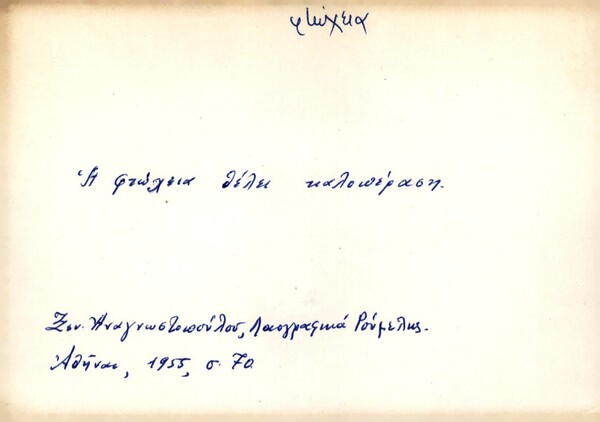 φτώχεια
Ἡ φτώχεια θέλει καλοπέραση.
Ξεν. Ἀναγνωστοπούλου, Λαογραφικά Ρούμελης.
Ἀθῆναι, 1955, σ. 70